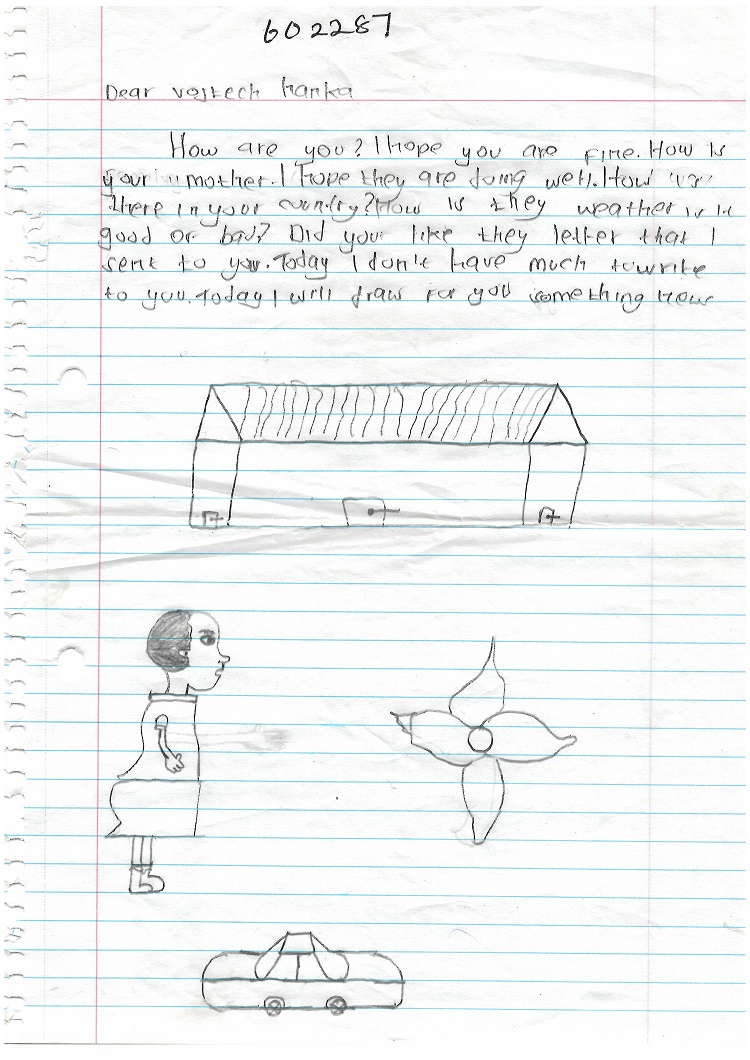 602287
Dear vojtech hanka
How are you? I hope you are fine. How is
your mother. I hope they are doing well. How
there in your country? How is they weather is it
good or bad? Did you like they letter that I
sent to you. Today I don't have much to write
to you. Today I will draw for you something